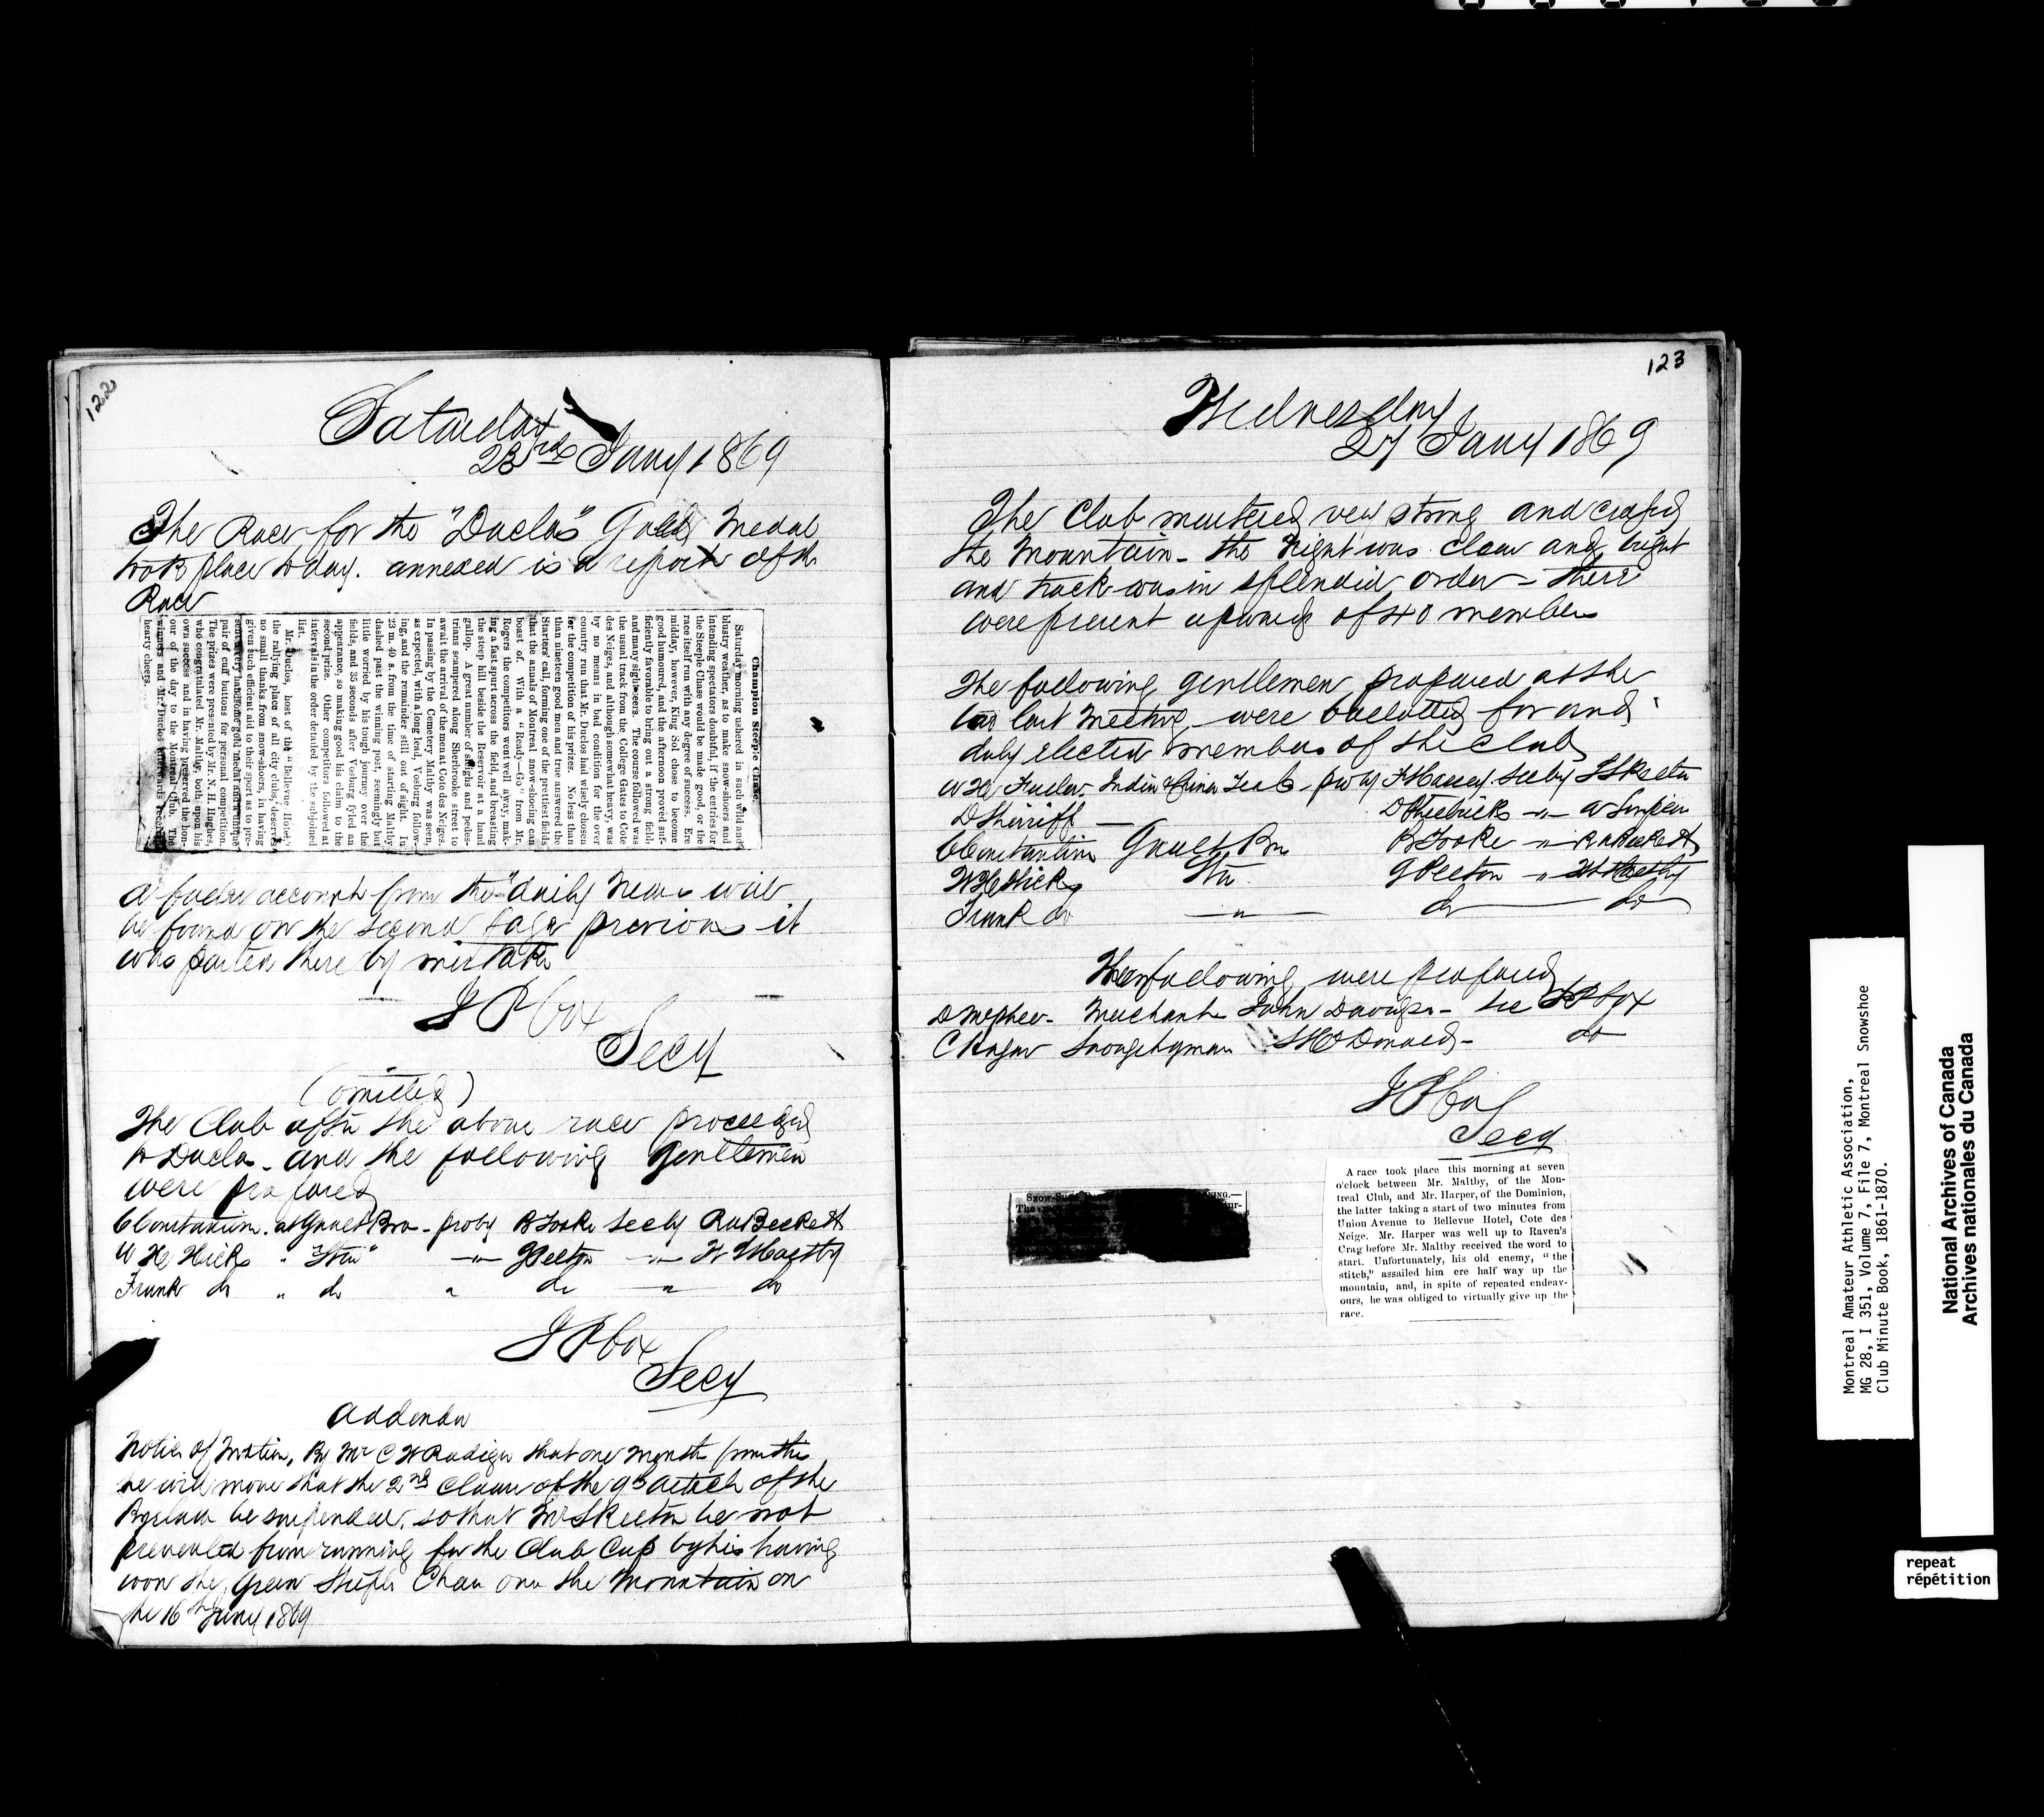 122
Saturday
23rd Jany 1869
The Race for the "Duclos" Gold Medal
took place to day. annexed is a report of the
Race
Champion Steeple Chase.
Saturday morning ushered in such wild and
blustry weather, as to make snow-shoers and
intending spectators doubtful, if the entries for
the Steeple Chase would be made good, or the
race itself run with any degree of success. Ere
midday, however, King Sol chose to become
good humoured, and the afternoon proved suf-
ficiently favorable to bring out a strong field,
and many sight-seers. The course followed was
the usual track from the College Gates to Cote
des Neiges, and although somewhat heavy, was
by no means in bad condition for the over
country run that Mr. Duclos had wisely chosen
for the competition of his prizes. No less than
than nineteen good men and true answered the
Starters' call, forming one of the prettiest fields
that the annals of Montreal snow-shoeing can
boast of. With a "Ready—Go" from Mr.
Rogers the competitors went well away, mak-
ing a fast spurt across the field, and breasting
the steep hill beside the Reservoir at a hand
gallop. A great number of sleighs and pedes-
trians scampered along Sherbrooke street to
await the arrival of the men at Cote des Neiges.
In passing by the Cemetery Maltby was seen,
as expected, with a long lead, Vosburg follow-
ing, and the remainder still out of sight. In
23 m. 40 s. from the time of starting Maltby
dashed past the winning post, seemingly but
little worried by his tough journey over the
fields, and 35 seconds after Vosburg fyled an
appearance, so making good his claim to the
second prize. Other competitors followed at
intervals in the order detailed by the subjoined
list.
Mr. Duclos, host of the "Bellevue Hotel,"
the rallying place of all city clubs, deserves
no small thanks from snow-shoers, in having
given such efficient aid to their sport as to pre-
sent a very handsome gold medal and a unique
pair of cuff buttons for personal competition.
The prizes were presented by Mr. N. H. Hughes,
who congratulated Mr. Maltby, both upon his
own success and in having preserved the hon-
our of the day to the Montreal Club. The
winners and Mr. Duclos afterwards received
hearty cheers.
A fuller account from the "daily News will
be found on the second page previous it
was pasted there by mistake
J P Cox
Secy
(omitted)
The Club after the above race proceeded
to Duclos - and the following gentlemen
were proposed
C Constantine at Gault Bro - pro by B Tooke sec by RW Beckett
W H Hicks
Frank do " do " do " do
J P Cox
Secy
Addenda
Notice of Motion, By Mr C W Radiger that one month from this
he will move that the 2nd clause of the 9th article of the
Bylaws be suspended, so that Mr Skelton be not
prevented from running for the Club Cup by his having
won the Green Steeple Chase over the Mountain on
the 16th Jany 1869
123
Wednesday
27 Jany 1869
The Club mustered very strong and crossed
the Mountain - the Night was clear and bright
and track was in splendid order - there
were present upwards of 40 members
The following gentlemen proposed at the
last Meeting were ballotted for and
duly elected members of the Club
D Shirriff
C Constantine Gault Bro B Tooke " RW Beckett
W H Hicks
Frank do " do do
The following were proposed
J P Cox
Secy
A race took place this morning at seven
o'clock between Mr. Maltby, of the Mon-
treal Club, and Mr. Harper, of the Dominion,
the latter taking a start of two minutes from
Union Avenue to Bellevue Hotel, Cote des
Neige. Mr. Harper was well up to Raven's
Crag before Mr. Maltby received the word to
start. Unfortunately, his old enemy, "the
stitch," assailed him ere half way up the
mountain, and, in spite of repeated endeav-
ours, he was obliged to virtually give up the
race.
Montreal Amateur Athletic Association,
MG 28, I 351, Volume 7, File 7, Montreal Snowshoe
Club Minute Book, 1861-1870.
National Archives of Canada
Archives nationales du Canada
repeat
répétition